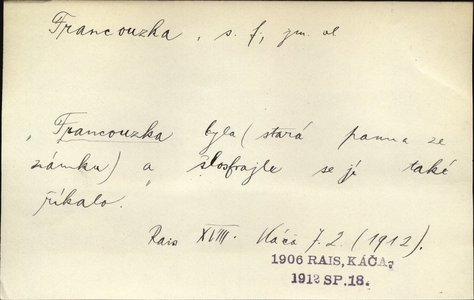 Francouzka, s. f., jm. ol
„Francouzka byla (stará panna ze
zámku) a šlosfrajle se jí také
říkalo.“
Rais XVIII. Káča 7. 2. (1912).
1906 RAIS, KÁČA,
1912 SP. 18.